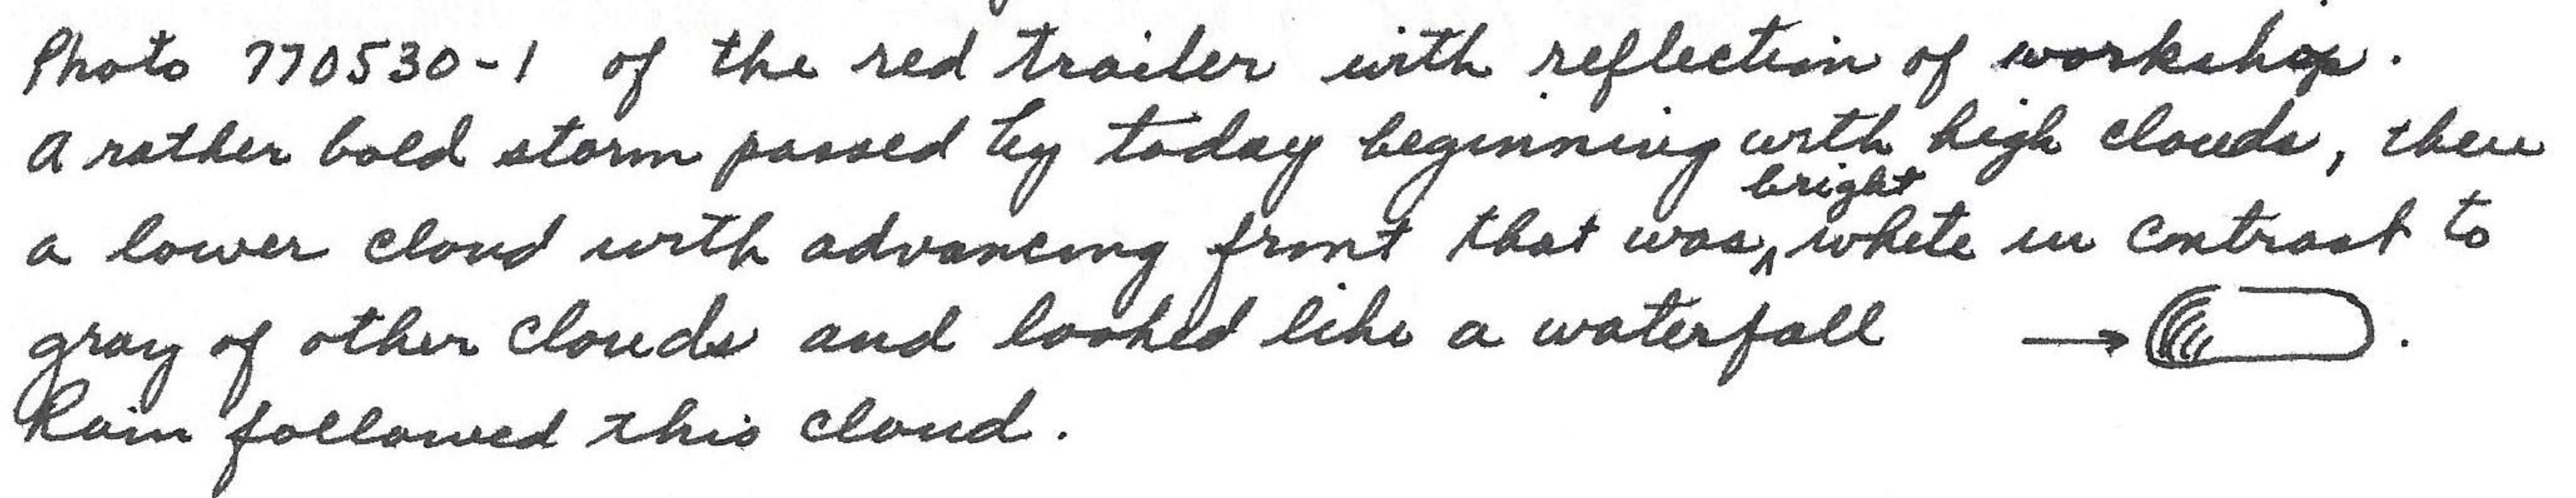 Photo 770530-1 of the red trailer with reflection of workshop.
A rather bold storm passed by today beginning with high clouds, then
a lower cloud with advancing front that was ^bright white in contrast to
gray of other clouds and looked like a waterfall → .
Rain followed this cloud.